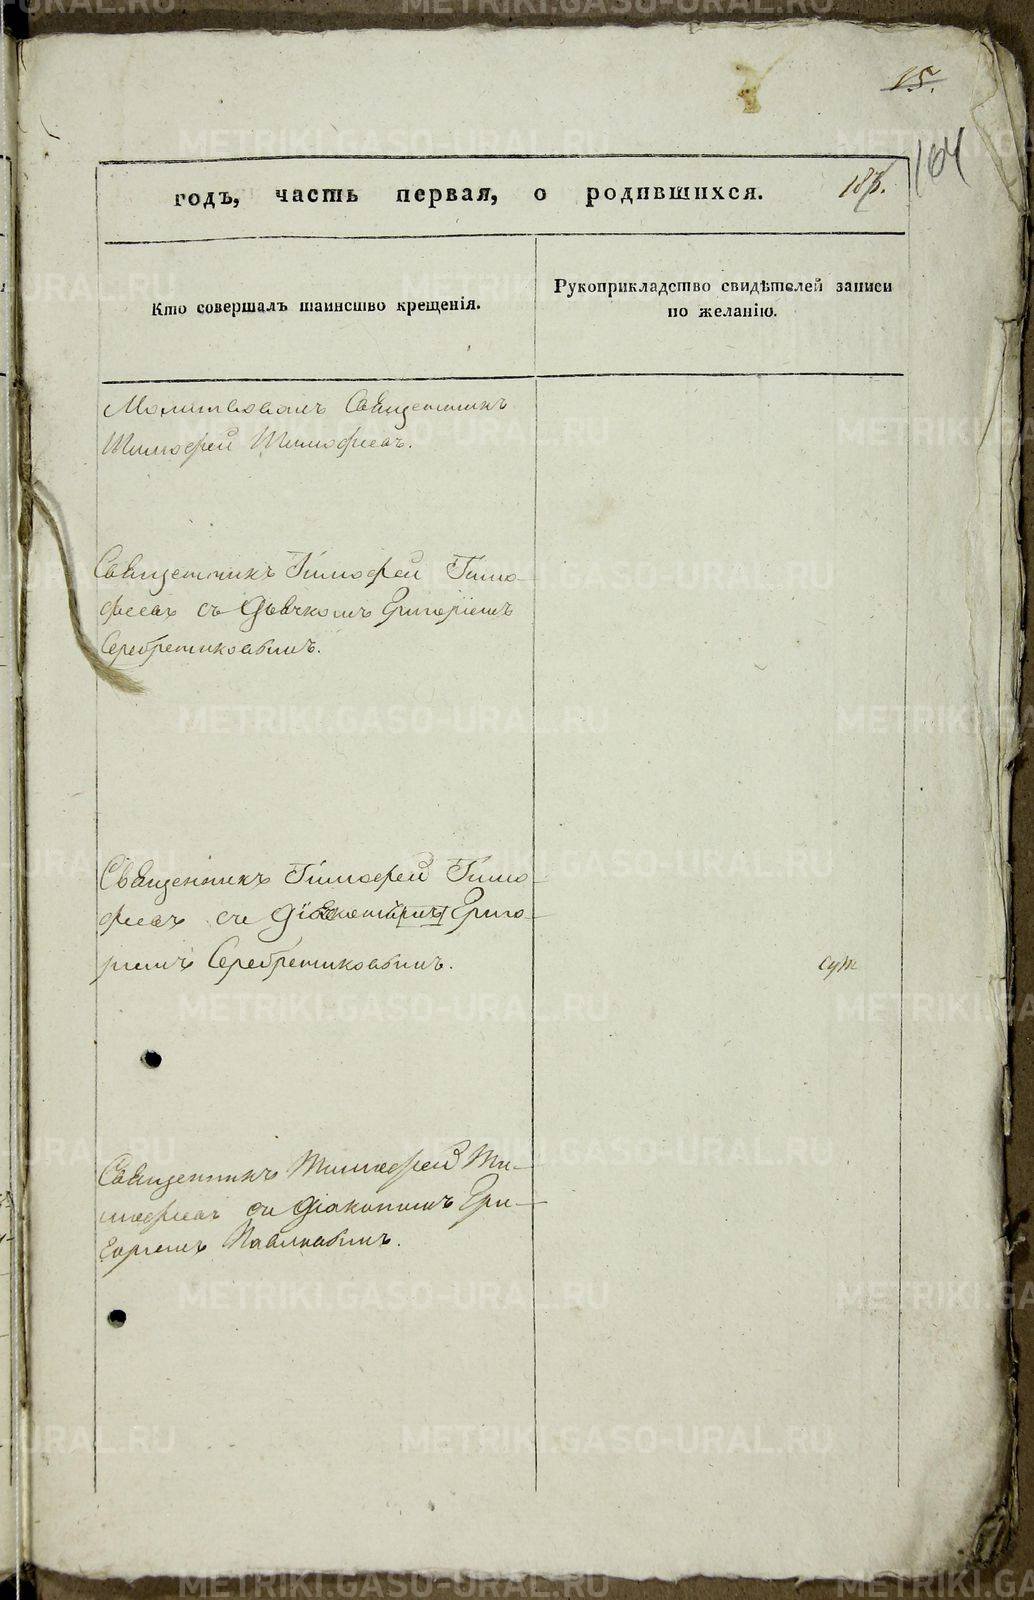 15.
164
годъ, часть первая, о родившихся.
Кто совершалъ таинство крещенія.
Рукоприкладство свидѣтелей записи
по желанію.
Молитвовалъ Священникъ
Тимофей Тимофеевъ.
Священникъ Тимофей Тимо-
феевъ съ Дьячкомъ Григоріемъ
Серебрениковымъ.
Священникъ Тимофей Тимо-
феевъ съ Григо-
ріемъ Серебрениковымъ.
Священникъ Тимофей Ти-
мофеевъ съ Діакономъ Гри-
горіемъ Павловымъ.
METRIKI.GASO-URAL.RU